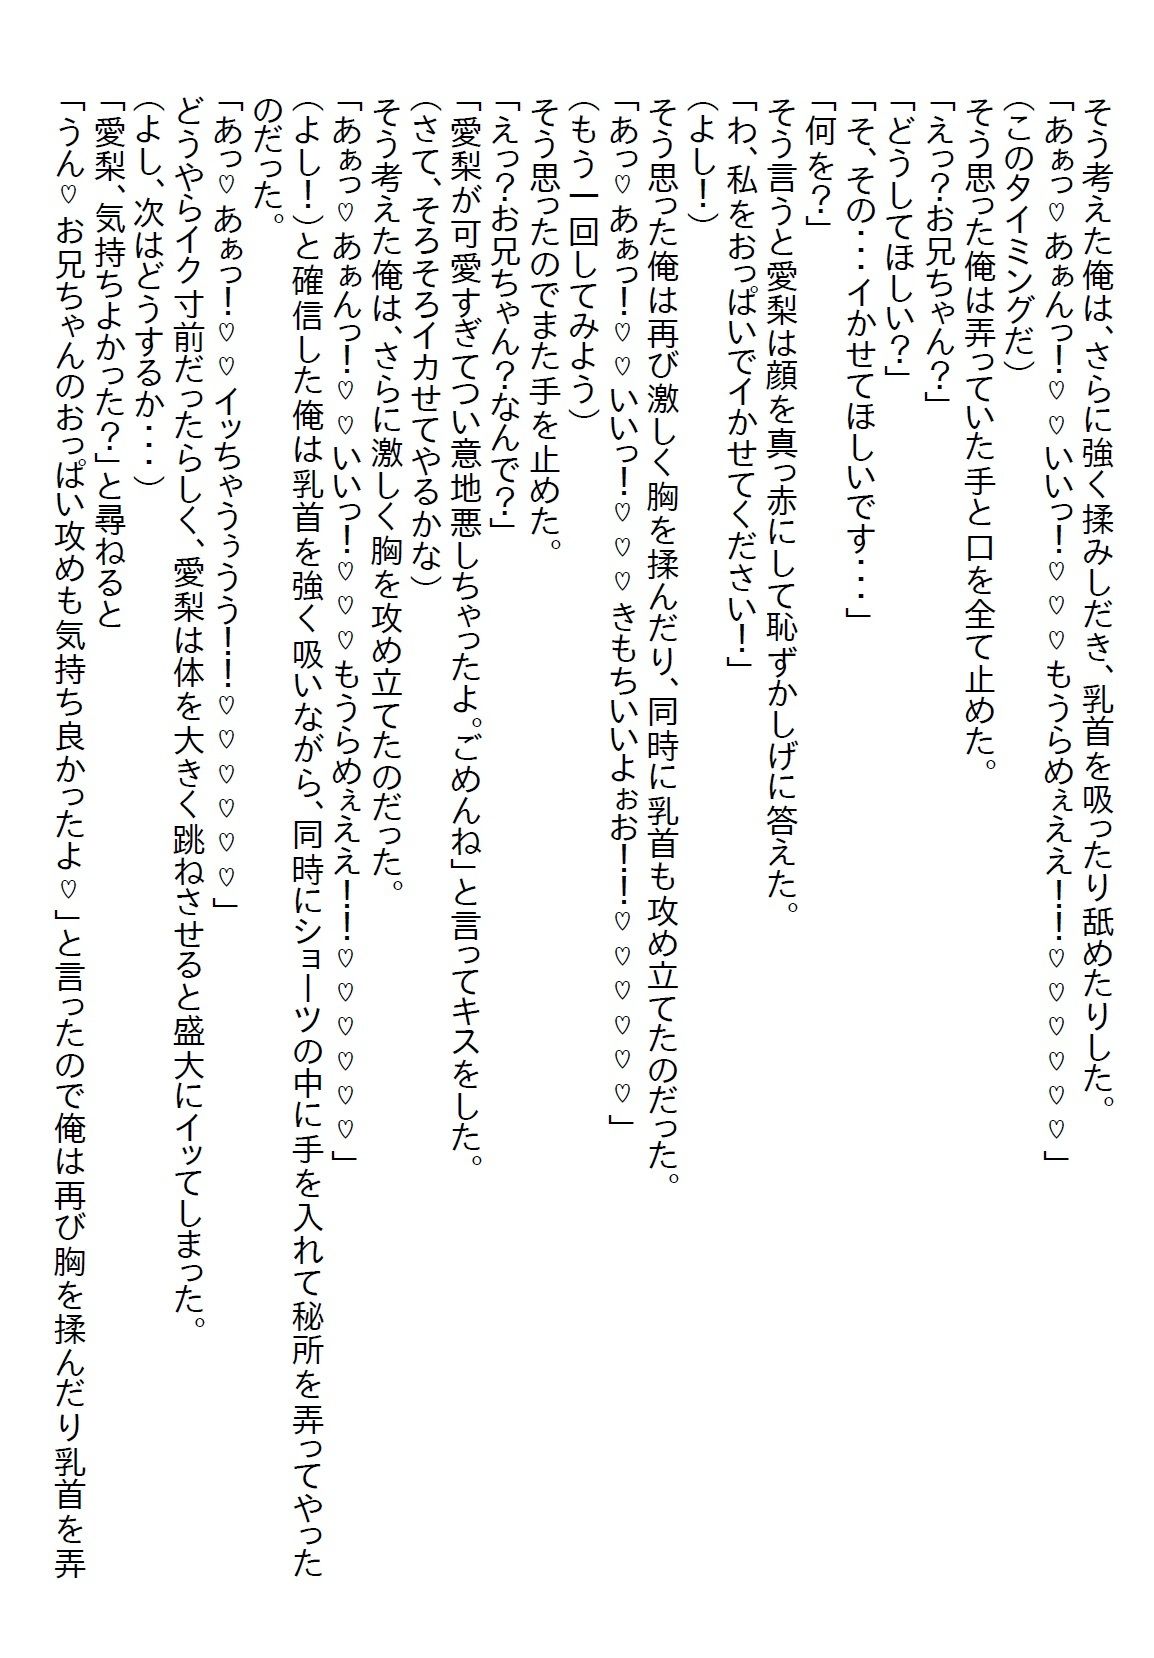 そう考えた俺は、さらに強く揉みしだき、乳首を吸ったり舐めたりした。
「あぁっ♡あぁんっ！♡♡いいっ！♡♡♡もうらめぇええ！！♡♡♡♡♡♡」
（このタイミングだ）
そう思った俺は弄っていた手と口を全て止めた。
「えっ？お兄ちゃん？」
「どうしてほしい？」
「そ、その・・・イかせてほしいです・・・」
「何を？」
そう言うと愛梨は顔を真っ赤にして恥ずかしげに答えた。
「わ、私をおっぱいでイかせてください！」
（よし！）
そう思った俺は再び激しく胸を揉んだり、同時に乳首も攻め立てたのだった。
「あっ♡あぁっ！♡♡いいっ！♡♡♡きもちいいよぉお！！♡♡♡♡♡♡」
（もう一回してみよう）
そう思ったのでまた手を止めた。
「えっ？お兄ちゃん？なんで？」
「愛梨が可愛すぎてつい意地悪しちゃったよ。ごめんね」と言ってキスをした。
（さて、そろそろイカせてやるかな）
そう考えた俺は、さらに激しく胸を攻め立てたのだった。
「あぁっ♡あぁんっ！♡♡いいっ！♡♡♡もうらめぇええ！！♡♡♡♡♡♡」
（よし！）と確信した俺は乳首を強く吸いながら、同時にショーツの中に手を入れて秘所を弄ってやった
のだった。
「あっ♡あぁっ！♡♡イッちゃうぅうう！！♡♡♡♡♡♡」
どうやらイク寸前だったらしく、愛梨は体を大きく跳ねさせると盛大にイッてしまった。
（よし、次はどうするか・・・）
「愛梨、気持ちよかった？」と尋ねると
「うん♡お兄ちゃんのおっぱい攻めも気持ち良かったよ♡」と言ったので俺は再び胸を揉んだり乳首を弄